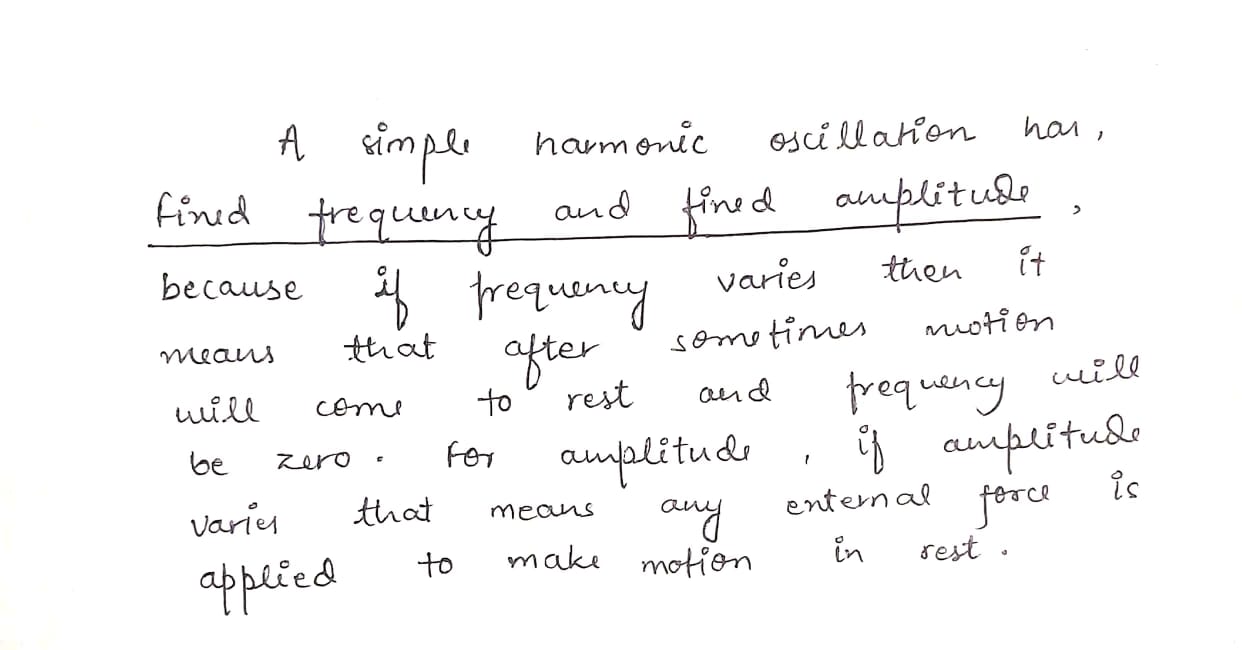 A simple harmonic oscillation has,
fixed frequency and fixed amplitude,
because if frequency varies then it
means that after sometimes motion
will come to rest and frequency will
be zero. For amplitude, if amplitude
varies that means any external force is
applied to make motion in rest.